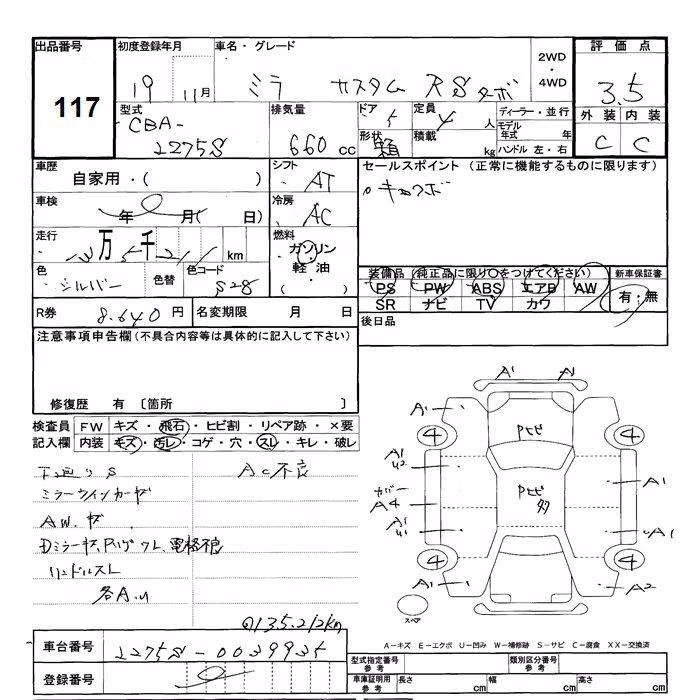 出品番号 初度登録年月 車名・グレード 2WD ・ 4WD 評価点
117 19 11月 ミラ カスタム RS ターボ 3.5
型式 CBA- L275S 排気量 660 cc ドア 5 定員 4 人 ディーラー・並行
形状 箱 積載 kg モデル年式 年 ハンドル 左・右
外装 内装
C C
車歴 自家用・( ) シフト AT
セールスポイント (正常に機能するものに限ります)
車検 年 月( 日) 冷房 AC
走行 万 千 km 燃料 ガソリン・軽油・( )
色 シルバー 色替 色コード S28
装備品 (純正品に限り○をつけてください) 新車保証書
PS PW ABS エアB AW 有・無
SR ナビ TV カワ
R券 8,640 円 名変期限 月 日
後日品
注意事項申告欄(不具合内容等は具体的に記入して下さい)
修復歴 有 〔箇所 〕
検査員 FW キズ・飛石・ヒビ割・リペア跡・×要
記入欄 内装 キズ・汚レ・コゲ・穴・スレ・キレ・破レ
下廻り S AC不良
ミラーウインカーヤ
AW.キズ
ハンドルスレ
各A.U
135,212km
A1 A1
A1
4 4
Pヒビ
A1
U2 A1
カバー
A4
Pヒビ
多
A1
U1 A1
4 4
A1 A2
スペア
A-キズ E-エクボ U-凹み W-補修跡 S-サビ C-腐食 XX-交換済
車台番号 L275S-0039935
登録番号
型式指定番号 参考 類別区分番号 参考
車庫証明用 参考 長さ cm 幅 cm 高さ cm